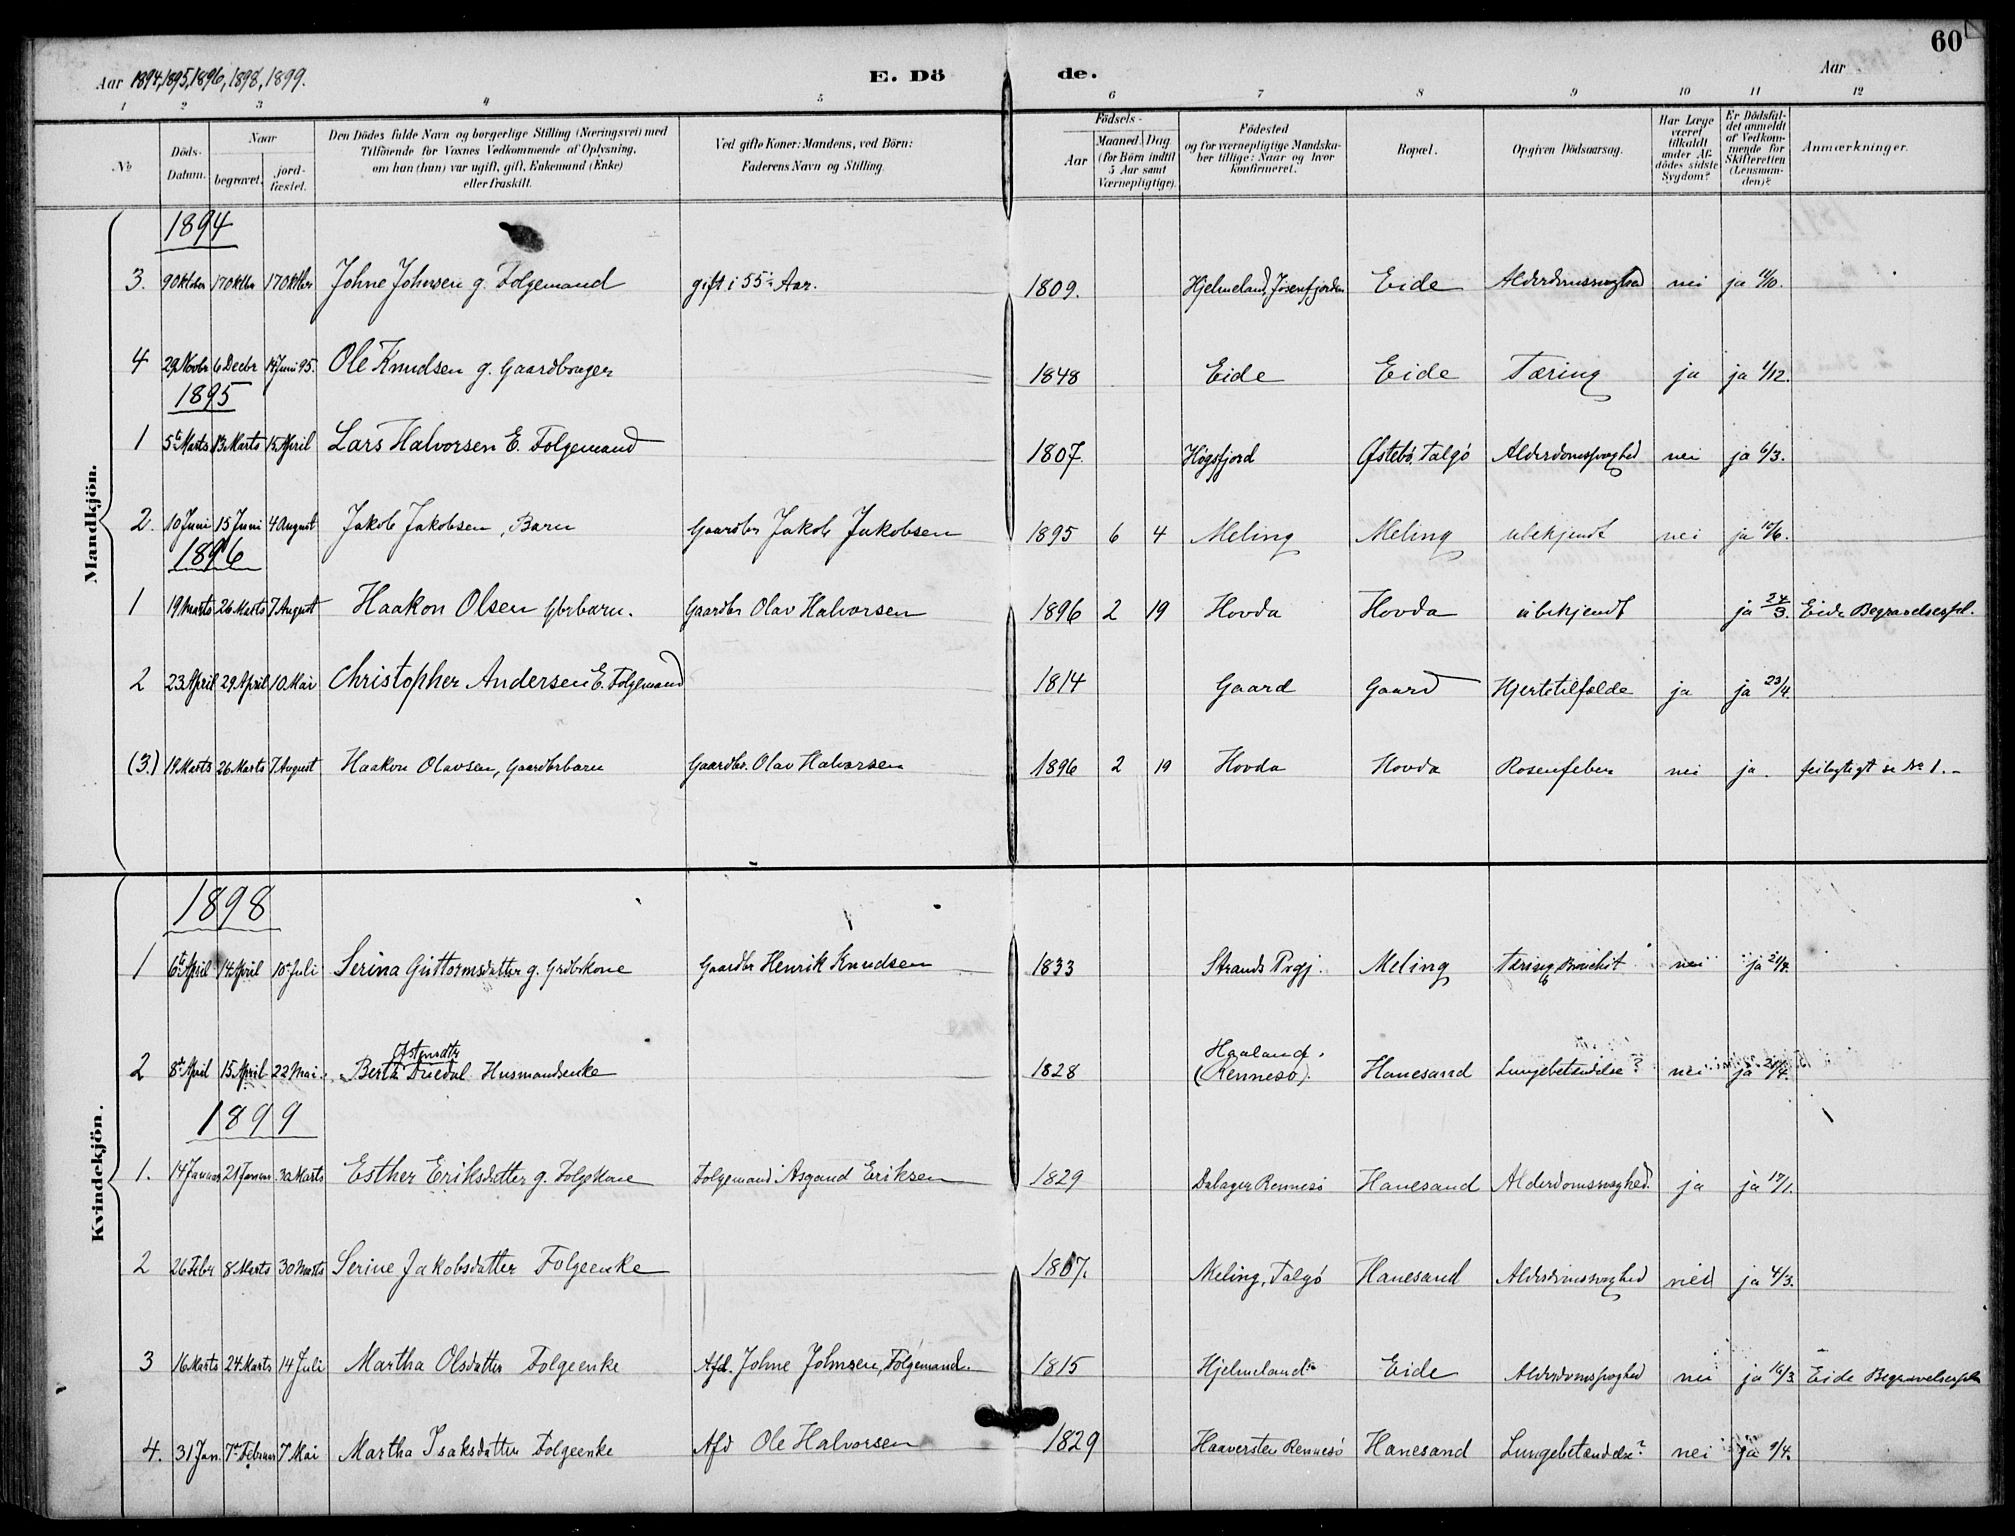 60
Aar 1894, 1895, 1896, 1898, 1899. E. Dö de. Aar
1 2 3 4 5 6 7 8 9 10 11 12
No
Döds-Datum.
Naar
begravet.
jord-fæstet.
Den Dödes fulde Navn og borgerlige Stilling (Næringsvei) med
Tilföiende for Voxnes Vedkommende af Oplysning,
om han (hun) var ugift, gift, Enkemand (Enke)
eller fraskilt.
Ved gifte Koner: Mandens, ved Börn:
Faderens Navn og Stilling.
Födsels-
Aar
Maaned. Dag.
(for Börn indtil
5 Aar samt
Værnepligtige).
Födested
og for værnepligtige Mandska-
ber tillige: Naar og hvor
konfirmeret.
Bopæl.
Opgiven Dödsaarsag.
Har Læge
været
tilkaldt
under Af-
dödes sidste
Sygdom?
Er Dödsfal-
det anmeldt
af Vedkom-
mende for
Skifteretten
(Lensman-
den)?
Anmærkninger.
Mandkjön.
1894
3. 9 Oktober 17 Oktbr 17 Oktber Johne Johnsen g. Folgemand gift i 55 Aar. 1809. Hjelmeland, Jösenfjorden Eide Alderdomssvaghed nei ja 11/10.
4 29 Novbr 6 Decbr 14 Juni 95. Ole Knudsen g. Gaardbruger 1848 Eide Eide Tæring ja ja 1/12.
1895
1 5te Marts 13 Marts 15 April Lars Halvorsen E. Folgemand 1807. Högsfjord Østebö, Talgö Alderdomssvaghed nei ja 6/3.
2. 10 Juni 15 Juni 4 August Jakob Jakobsen, Barn Gaardbr Jakob Jakobsen 1895 6 4 Meling Meling ubekjendt nei ja 10/6.
1896
1 19 Marts 26 Marts 7 August Haakon Olsen Gbrbarn. Gaardbr Olav Halvorsen 1896 2 19 Hovda Hovda ubekjendt ja 24/3. Eide Begravelsespl.
2 23 April 29 April 10 Mai Christopher Andersen E. Folgemand 1814 Gaard Gaard Hjertetilfælde ja ja 23/4.
(3.) 19 Marts 26 Marts 7 August Haakon Olavsen, Gaardbrbarn Gaardbr. Olav Halvorsen 1896 2 19 Hovda Hovda Rosenfeber nei ja. feilagtigt se No 1.-
Kvindekjön.
1898
1 6te April 14 April 10 Juli Serina Guttormsdatter g. Grdbrkone Gaardbr Henrik Knudsen 1833 Strands Prgj. Meling Tæring Bronchit nei ja 21/4.
2 8de April 15 April 22 Mai. Berta Duedal Husmandsenke 1828 Haaland, (Rennesö). Hanesand Lungebetændelse? nei ja
1899
1. 14 Januar 21 Januar 30 Marts Esther Eriksdatter g. Folgekone Folgemand Asgaud Eriksen 1829 Dalager Rennesö Hanesand Alderdomssvaghed. ja ja 17/1.
2 26 Febr 8 Marts 30 Marts Serine Jakobsdatter Folgeenke 1807. Meling, Talgö Hanesand Alderdomssvaghed nei ja 4/3.
3 16 Marts 24 Marts 14 Juli Martha Olsdatter Folgeenke Afd. Johne Johnsen, Folgemand. 1815 Hjelmeland Eide Alderdomssvaghed nei ja 16/3 Eide Begravelsespl
4. 31 Jan 7de Februar 7 Mai Martha Isaksdatter Folgeenke Afd Ole Halvorsen 1829 Haaversten Rennesö Hanesand Lungebetændelse? nei ja 9/4.